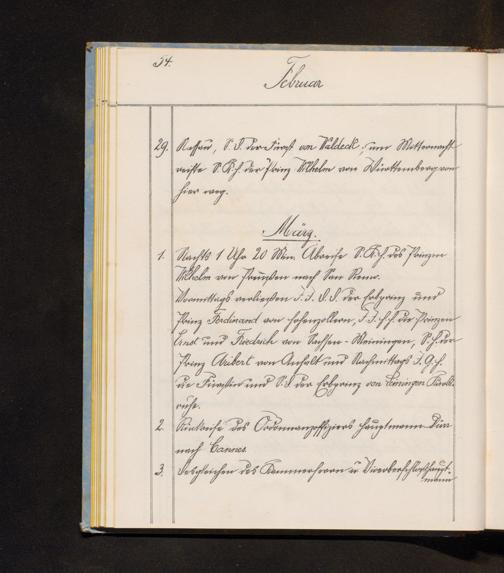 34.
Februar
29. Nassau, S. D. der Fürst von Waldeck; um Mitternacht
reiste S. K. H. der Prinz Wilhelm von Württemberg von
hier weg.
März.
1. Nachts 1 Uhr 20 Min. Abreise S. K. H. des Prinzen
Wilhelm von Preußen nach San Remo.
Vormittags verließen I. I. D. D. der Erbprinz und
Prinz Ferdinand von Hohenzollern, I. I. H. H. die Prinzen
Ernst und Friedrich von Sachsen-Meiningen, S. H. der
Prinz Aribert von Anhalt und Nachmittags I. G. H.
die Fürstin und S. D. der Erbprinz von Leiningen Karls-
ruhe.
2. Rückreise des Ordonnanzoffiziers Hauptmann
nach Cannes
3. Desgleichen des Kammerherrn u.